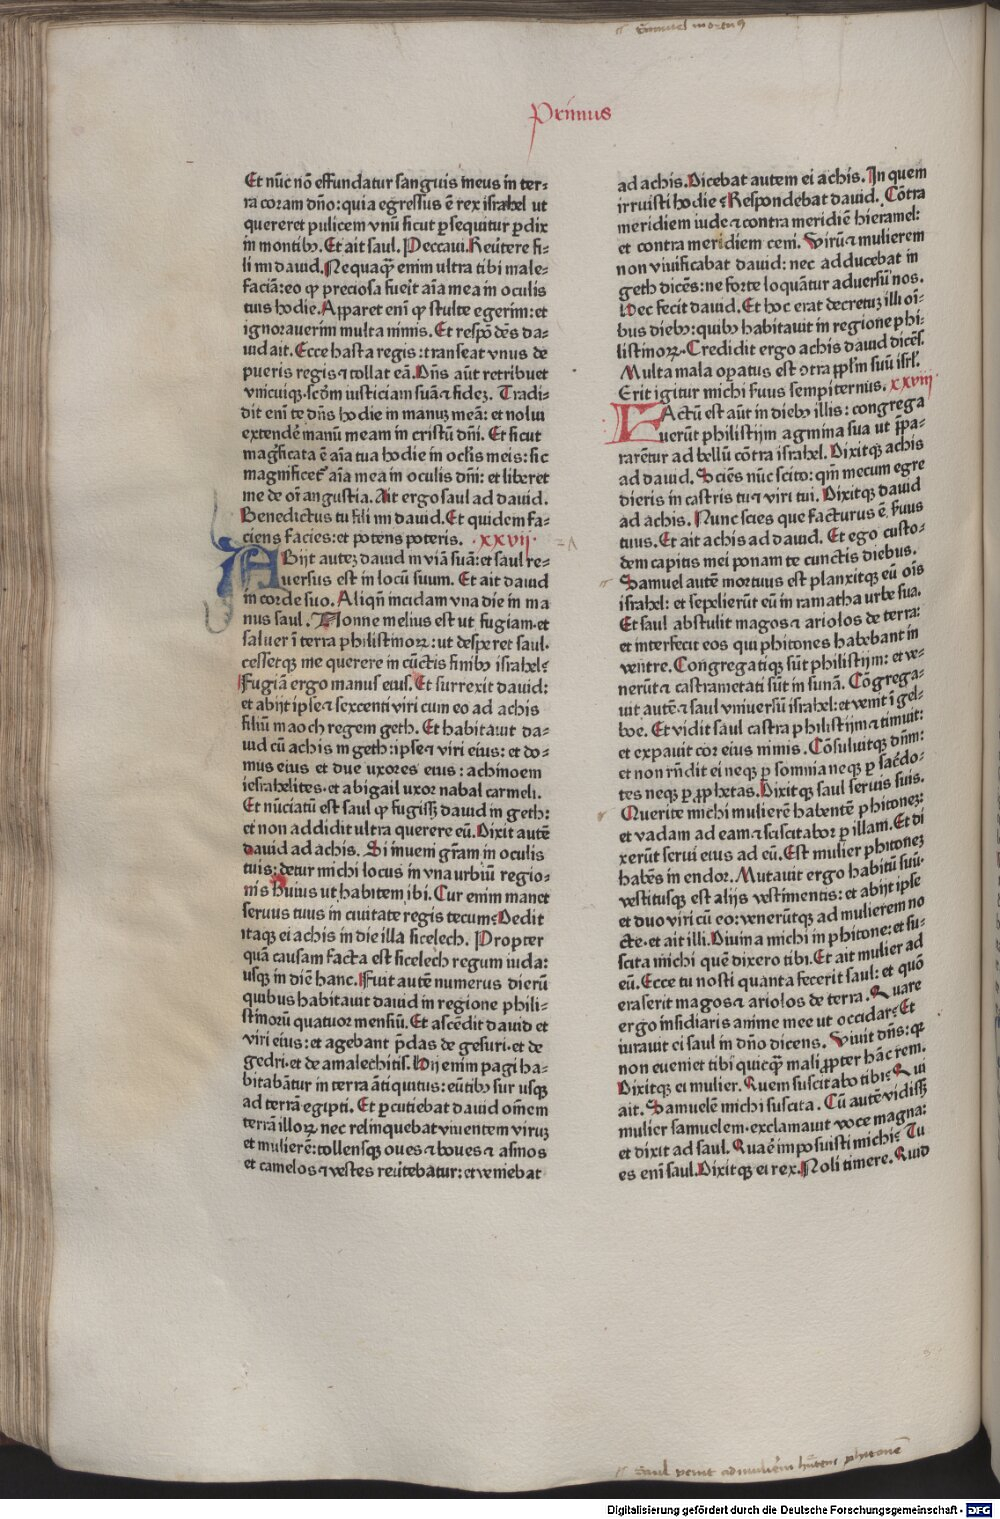 Samuel mortuꝰ
Primus
Et nūc nō effundatur sanguis meus in ter⸗
ra coram dño: quia egressus ē rex israhel ut
quereret pulicem vnū sicut ꝑsequitur ꝑdix
in montibꝫ. Et ait saul. Peccaui. Reūtere fi⸗
li mi dauid. Nequaq̄ꝫ enim ultra tibi male⸗
faciā: eo ꝙ preciosa fuerit aīa mea in oculis
tuis hodie. Apparet enī ꝙ stulte egerim: et
ignorauerim multa nimis. Et respōdēs da⸗
uid ait. Ecce hasta regis: transeat vnus de
pueris regis ⁊ tollat eā. Dñs aūt retribuet
vnicuiqꝫ scdm iusticiam suā ⁊ fidez. Tradi⸗
dit enī te dñs hodie in manuz meā: et nolui
extendē manū meam in cristū dñi. Et sicut
magficata ē aīa tua hodie in oclis meis: sic
magnificet aīa mea in oculis dñi: et liberet
me de oī angustia. Ait ergo saul ad dauid.
Benedictus tu fili mi dauid. Et quidem fa⸗
ciens facies: et potens poteris. .xxvij.
ABijt autez dauid in viā suā: et saul re⸗
uersus est in locū suum. Et ait dauid
in corde suo. Aliqn̄ incidam vna die in ma
nus saul. Nonne melius est ut fugiam et
saluer ī terra philistinorꝝ: ut desperet saul.
cessetqꝫ me querere in cūctis finibꝫ israhel?
Fugiā ergo manus eius. Et surrexit dauid:
et abijt ipse ⁊ sexcenti viri cum eo ad achis
filiū maoch regem geth. Et habitauit da⸗
uid cū achis in geth: ipse ⁊ viri eius: et do⸗
mus eius et due uxores eius: achinoem
iesrahelites. et abigail uxor nabal carmeli.
Et nūciatū est saul ꝙ fugissꝫ dauid in geth:
et non addidit ultra querere eū. Dixit autē
dauid ad achis. Si inueni grām in oculis
tuis: detur michi locus in vna urbiū regio⸗
nis huius ut habitem ibi. Cur enim manet
seruus tuus in ciuitate regis tecum? Dedit
itaqꝫ ei achis in die illa sicelech. Propter
quā causam facta est sicelech regum iuda:
usqꝫ in diē hanc. Fuit autē numerus dierū
quibus habitauit dauid in regione phili⸗
stinorū quatuor mensiū. Et ascēdit dauid et
viri eius: et agebant ꝑdas de gesuri. et de
gedri. et de amalechitis. Hij enim pagi ha⸗
bitabātur in terra ātiquitus: eūtibꝫ sur usqꝫ
ad terrā egipti. Et ꝑcutiebat dauid om̄em
terrā illorꝝ nec relinquebat viuentem viruz
et mulierē: tollensqꝫ oues ⁊ boues ⁊ asinos
et camelos ⁊ vestes reūtebatur: et veniebat
ad achis. Dicebat autem ei achis. In quem
irruisti hodie? Respondebat dauid. Cōtra
meridiem iude ⁊ contra meridiē hieramel:
et contra meridiem ceni. Virū ⁊ mulierem
non viuificabat dauid: nec adducebat in
geth dicēs: ne forte loquātur aduersū nos.
Hec fecit dauid. Et hoc erat decretuz illi oī⸗
bus diebꝫ: quibꝫ habitauit in regione phi⸗
listinorꝝ. Credidit ergo achis dauid dicēs.
Multa mala oꝑatus est ꝯtra ppl̄m suū isrl̄.
Erit igitur michi suus sempiternus. xxviij.
FActū est aūt in diebꝫ illis: congrega
uerūt philistijm agmina sua ut p̄pa⸗
rarētur ad bellū cōtra israhel. Dixitqꝫ achis
ad dauid. Sciēs nūc scito: qm̄ mecum egre
dieris in castris tu ⁊ viri tui. Dixitqꝫ dauid
ad achis. Nunc scies que facturus ē suus
tuus. Et ait achis ad dauid. Et ego custo⸗
dem capitis mei ponam te cunctis diebus.
Samuel autē mortuus est planxitqꝫ eū oīs
israhel: et sepelierūt eū in ramatha urbe sua.
Et saul abstulit magos ⁊ ariolos de terra:
et interfecit eos qui phitones habebant in
ventre. Congregatiqꝫ sūt philistijm: et ve⸗
nerūt ⁊ castrametati sūt in sunā. Cōgrega⸗
uit autē ⁊ saul vniuersū israhel: et venit ī gel⸗
boe. Et vidit saul castra philistijm ⁊ timuit:
et expauit cor eius nimis. Cōsuluitqꝫ dn̄m:
et non rn̄dit ei neqꝫ ꝑ somnia neqꝫ ꝑ sac̄do⸗
tes neqꝫ ꝑ ꝓphetas. Dixitqꝫ saul seruis suis.
Querite michi mulierē habentē phitonez:
et vadam ad eam ⁊ sciscitabor ꝑ illam. Et di
xerūt serui eius ad eū. Est mulier phitonez
habēs in endor. Mutauit ergo habitū suū.
vestitusqꝫ est alijs vestimentis: et abijt ipse
et duo viri cū eo: venerūtqꝫ ad mulierem no
cte. et ait illi. Diuina michi in phitone: et su⸗
scita michi quē dixero tibi. Et ait mulier ad
eū. Ecce tu nosti quanta fecerit saul: et quō
eraserit magos ⁊ ariolos de terra. Quare
ergo insidiaris anime mee ut occidar? Et
iurauit ei saul in dño dicens. Viuit dñs: qꝛ
non eueniet tibi quicq̄ꝫ mali ꝓpter hāc rem.
Dixitqꝫ ei mulier. Quem suscitabo tibi? Qui
ait. Samuelē michi suscita. Cū autē vidissꝫ
mulier samuelem. exclamauit voce magna:
et dixit ad saul. Quaē imposuisti michi? Tu
es enī saul. Dixitqꝫ ei rex. Noli timere. Quid
Saul venit ad mulierē hn̄tem phitonē
Digitalisierung gefördert durch die Deutsche Forschungsgemeinschaft - DFG